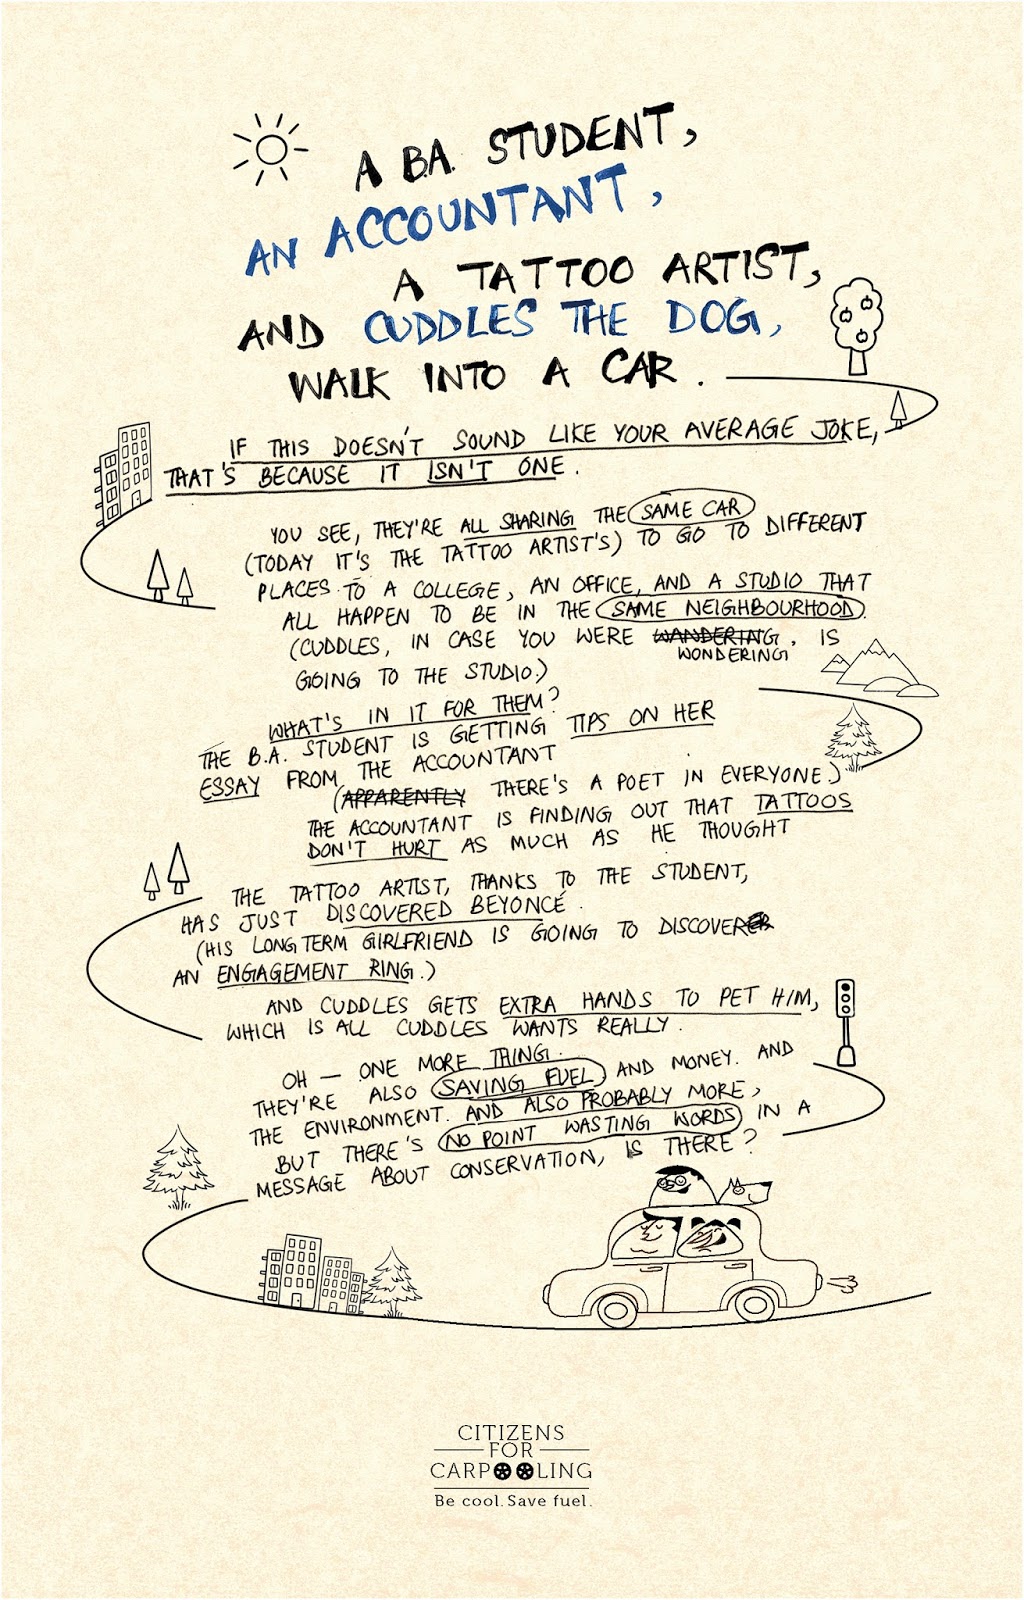 A B.A. STUDENT,
AN ACCOUNTANT,
A TATTOO ARTIST,
AND CUDDLES THE DOG,
WALK INTO A CAR.
IF THIS DOESN'T SOUND LIKE YOUR AVERAGE JOKE,
THAT'S BECAUSE IT ISN'T ONE.
YOU SEE, THEY'RE ALL SHARING THE SAME CAR
(TODAY IT'S THE TATTOO ARTIST'S) TO GO TO DIFFERENT
PLACES TO A COLLEGE, AN OFFICE, AND A STUDIO THAT
ALL HAPPEN TO BE IN THE SAME NEIGHBOURHOOD.
(CUDDLES, IN CASE YOU WERE WANDERING, IS
WONDERING
GOING TO THE STUDIO.)
WHAT'S IN IT FOR THEM?
THE B.A. STUDENT IS GETTING TIPS ON HER
ESSAY FROM THE ACCOUNTANT
(APPARENTLY THERE'S A POET IN EVERYONE.)
THE ACCOUNTANT IS FINDING OUT THAT TATTOOS
DON'T HURT AS MUCH AS HE THOUGHT
THE TATTOO ARTIST, THANKS TO THE STUDENT,
HAS JUST DISCOVERED BEYONCÉ.
(HIS LONG TERM GIRLFRIEND IS GOING TO DISCOVER
AN ENGAGEMENT RING.)
AND CUDDLES GETS EXTRA HANDS TO PET HIM,
WHICH IS ALL CUDDLES WANTS REALLY.
OH — ONE MORE THING.
THEY'RE ALSO SAVING FUEL AND MONEY. AND
THE ENVIRONMENT. AND ALSO PROBABLY MORE,
BUT THERE'S NO POINT WASTING WORDS IN A
MESSAGE ABOUT CONSERVATION, IS THERE?
CITIZENS
FOR
CARPOOLING
Be cool. Save fuel.